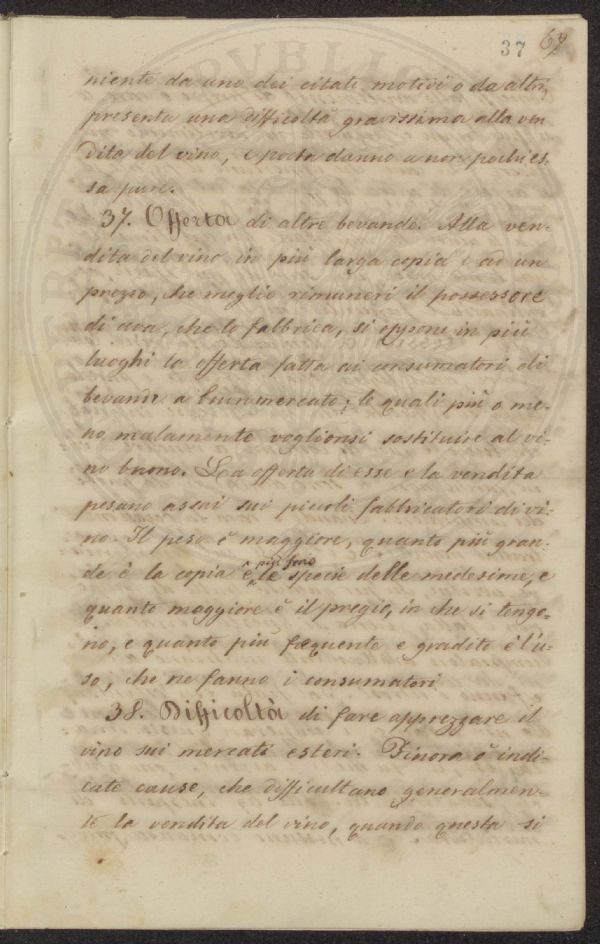 37 69
niente da uno dei citati motivi o da altri,
presenta una difficoltà gravissima alla ven
dita del vino, e porta danno a non pochi es.
sa pure.
37. Offerta di altre bevande. Alla ven-
dita del vino in più larga copia e ad un
prezzo, che meglio rimuneri il possessore
di uva, che lo fabbrica, si oppone in più
luoghi la offerta fatta ai consumatori di
bevande a buon mercato; le quali più o me-
no malamente voglionsi sostituire al vi-
no buono. La offerta di esse e la vendita
pesano assai sui piccoli fabbricatori di vi-
no. Il peso è maggiore, quanto più gran-
de è la copia e più sono le specie delle medesime, e
quanto maggiore è il pregio, in che si tengo-
no, e quanto più frequente e gradito è l'u-
so, che ne fanno i consumatori
38. Difficoltà di fare apprezzare il
vino sui mercati esteri. Finora ò indi-
cate cause, che difficultano generalmen-
te la vendita del vino, quando questa si